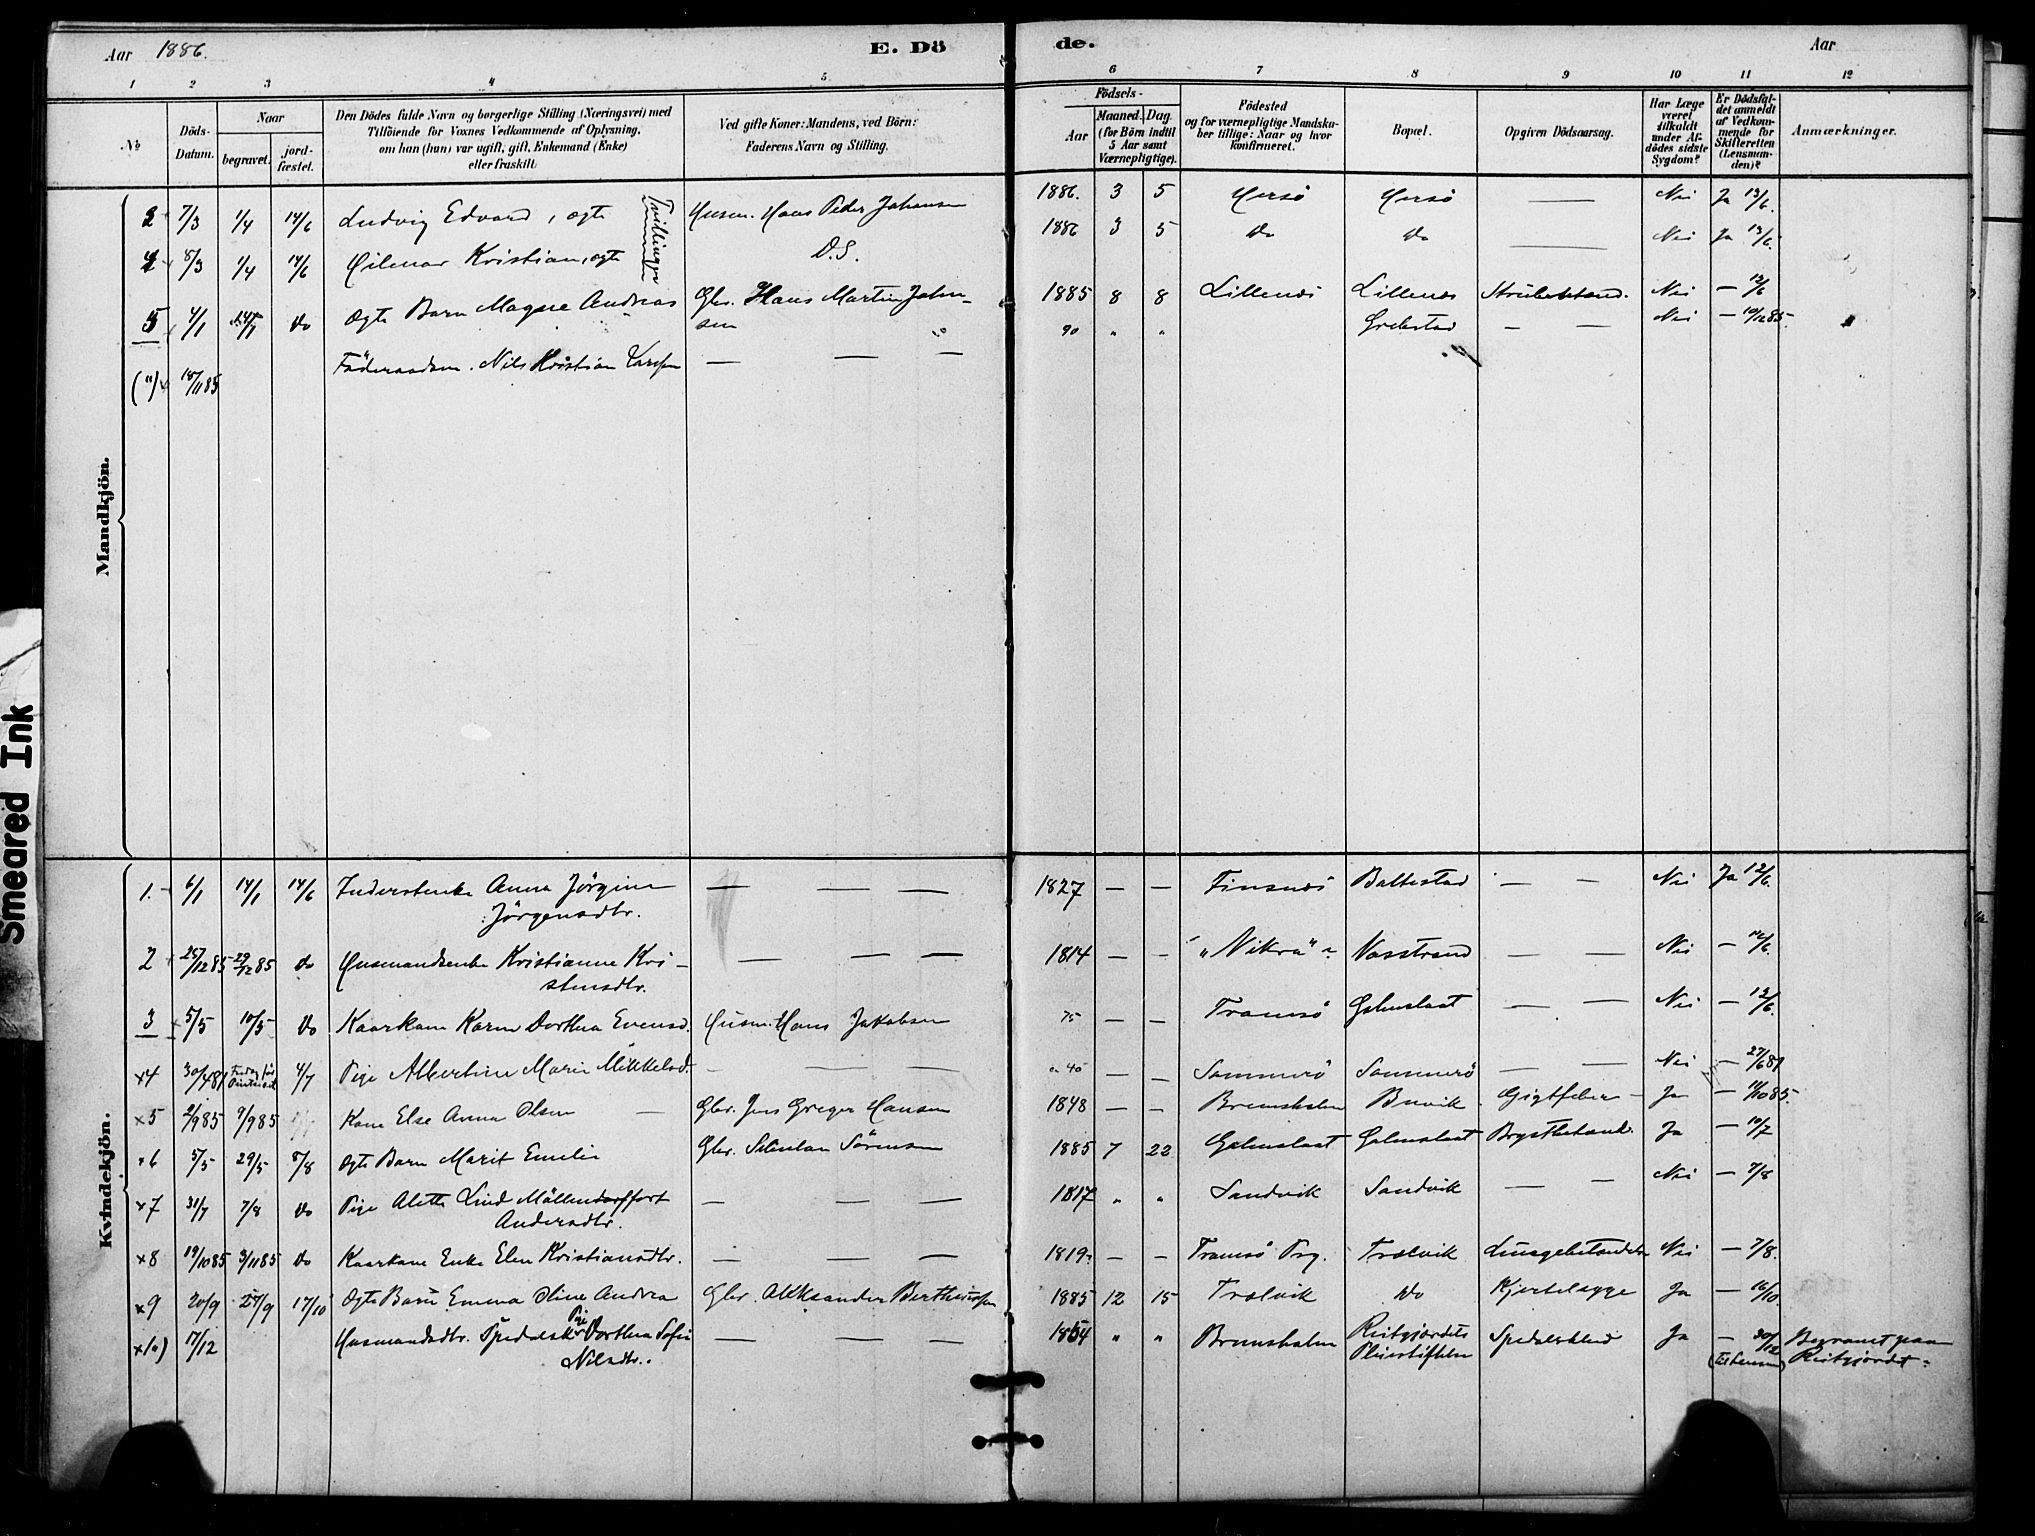 Aar 1886. E. Dö de. Aar
1 2 3 4 5 6 7 8 9 10 11 12
№
Döds-Datum.
Naar
begravet.
jordfæstet.
Den Dödes fulde Navn og borgerlige Stilling (Næringsvei) med
Tilföiende for Voxnes Vedkommende af Oplysning,
om han (hun) var ugift, gift, Enkemand (Enke)
eller fraskilt.
Ved gifte Koner: Mandens, ved Börn:
Faderens Navn og Stilling.
Födsels-
Aar
Maaned. Dag.
(for Börn indtil
5 Aar samt
Værnepligtige).
Födested
og for værnepligtige Mandska-
ber tillige: Naar og hvor
konfirmeret.
Bopæl.
Opgiven Dödsaarsag.
Har Læge
været
tilkaldt
under Af-
dødes sidste
Sygdom?
Er Dödsfal-
det anmeldt
af Vedkom-
mende for
Skifteretten
(Lensman-
den)?
Anmærkninger.
Mandkjön.
3 7/3 1/4 14/6 Ludvig Edvard, ægte Husm. Hans Peder Johansen 1886. 3 5 Nei Ja 12/6.
Tvillinger
4 8/3 1/4 14/6 Hilmar Kristian, ægte D.S. 1886 3 5 do do Nei Ja 12/6.
5 4/1 do Ægte Barn Magne Andreas Gbr. Hans Martin Johan-
sen 1885 8 8 Lillenes Lillenes Nei — 12/6
(") 18/11 85 Föderaadsm. Nils Kristian Larsen — — — 90 " " Grebstad — — Nei — 10/12 85.
Kvindekjön.
1. 6/1 14/1 14/6 Inderstenke Anna Jörgine
Jörgensdtr. — — — 1827 — — Finsnes Baltestad — — Nei Ja 12/6.
2 25/12 85 29/12 85 do Husmandsenke Kristianne Kri-
stensdtr. — — — 1814 — — Vasstrand — — Nei
3 5/5 10/5 do Kaarkone Karen Dorthea Evensd. Husm. Hans Jakobsen 75 — — Tromsö — — Nei — 12/6.
×4 4/7 Pige Albertine Marie Mikkelsd. — — — 40 — — Sommerö Sommerö Nei
×5 2/9 85 9/9 85 Kone Else Anna Olsen Gbr. Jens Greger Hansen 1848 — — Bremsholm Buvik Gigtfeber Ja
×6 5/5 29/5 8/8 Ægte Barn Marit Emilie Gbr. Sörensen 1885 7 22 Ja — 10/7
×7 31/7 7/8 do Pige Alette Lind Möllendorffort
Andersdtr. — — — 1817 " " Sandvik Sandvik — — Nei — 7/8
×8 19/10 85 3/11 85 do Kaarkone Enke Elen Kristiansdtr. — — — 1819 — — Tromsö Prg. Trælvik Lungebetændelse Nei — 7/8.
×9 20/9 27/9 17/10 Ægte Barn Emma Oline Andrea Gbr. Aleksander Bertheussen 1885 12 15 Trælvik do Kjertelsyge Ja — 16/10.
×10) 17/12 Husmandsdtr. Spedalsk Pige Dorthea Sofie
Nilsdtr. — — — 1854 " " Bremsholm Reitgjerdets
Pleiestiftelse Spedalskhed Ja — 30/12 Begravet paa
Reitgjerdet.
Smeared Ink